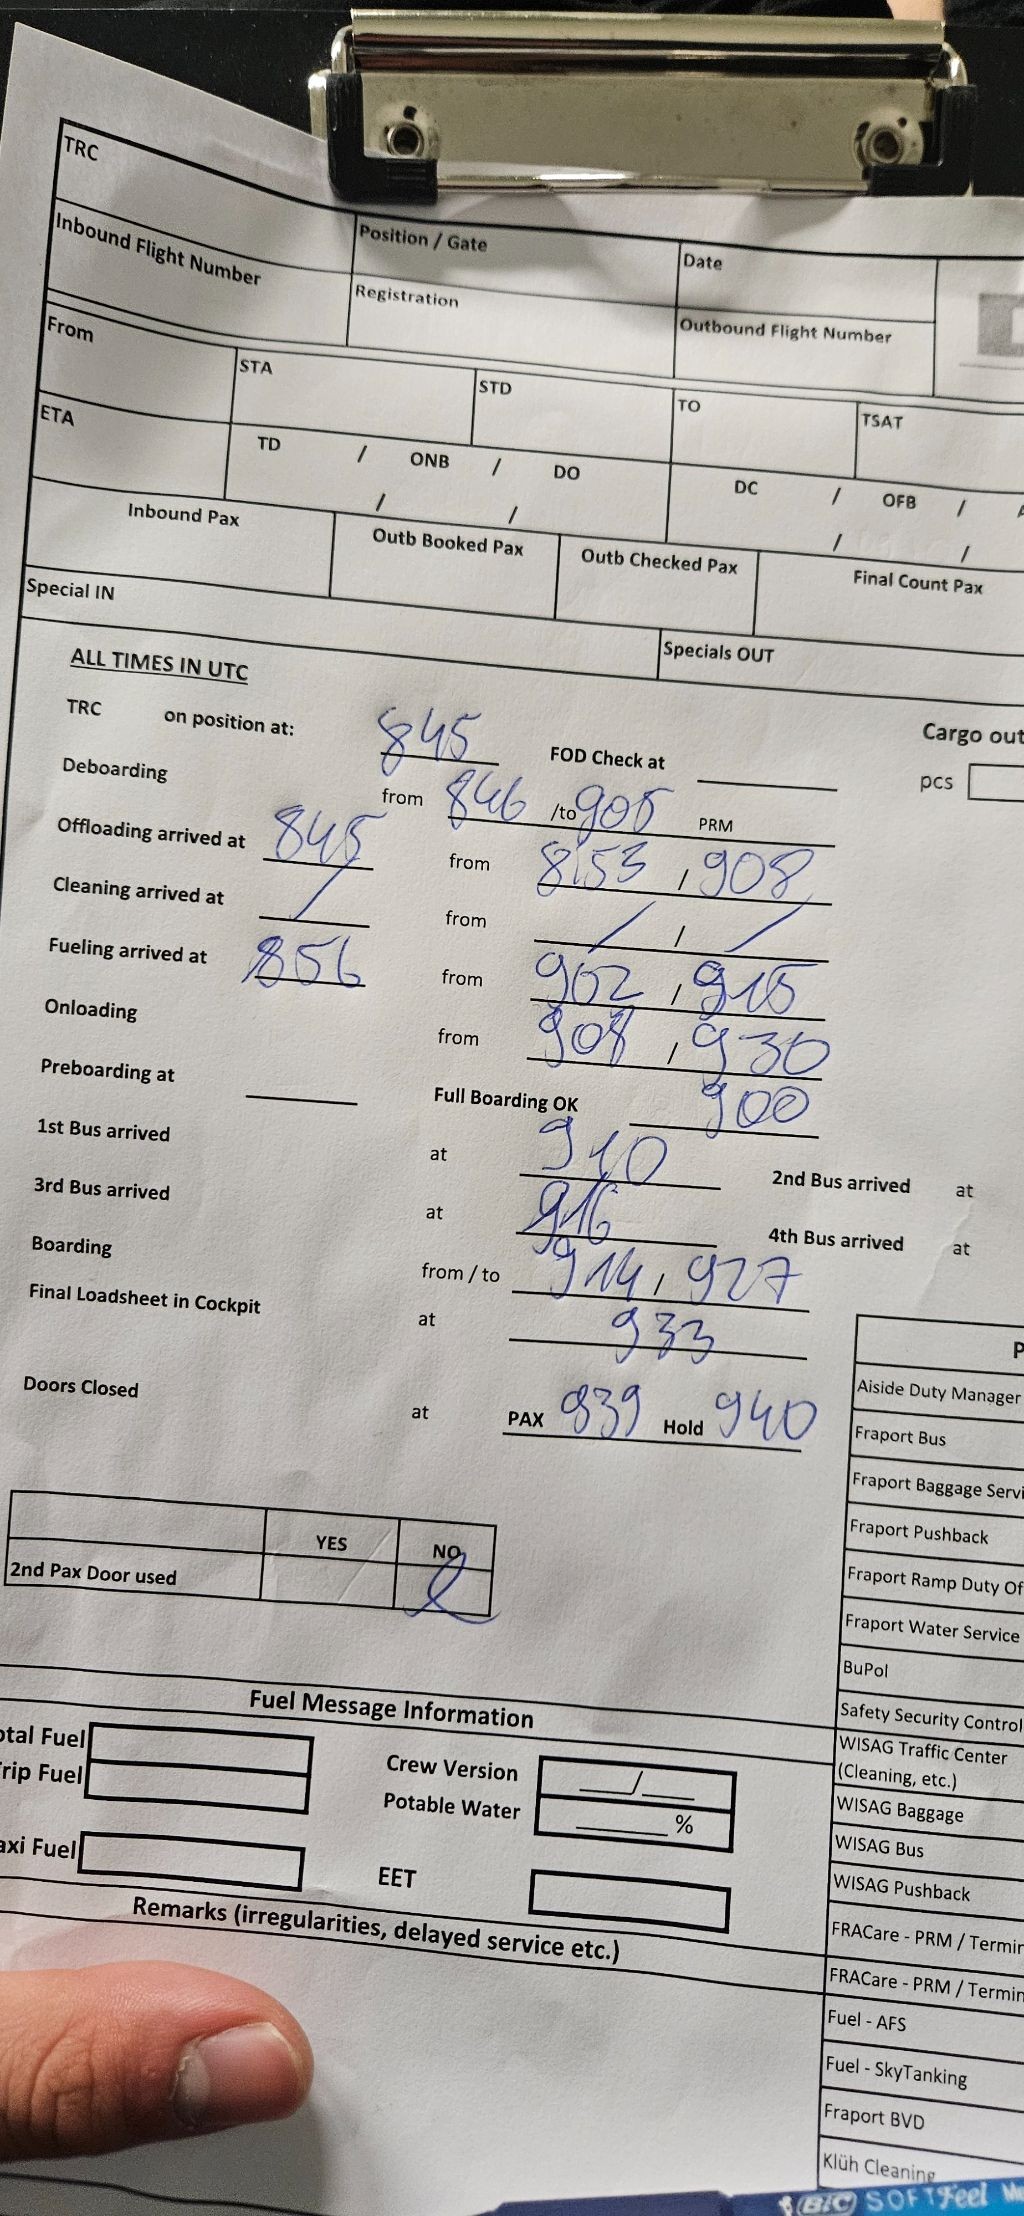 TRC
Position / Gate
Date
Inbound Flight Number
Registration
Outbound Flight Number
From
STA
STD
TO
TSAT
ETA
TD / ONB / DO
DC / OFB /
/ /
/ /
Inbound Pax
Outb Booked Pax
Outb Checked Pax
Final Count Pax
Special IN
Specials OUT
ALL TIMES IN UTC
TRC on position at: 845 FOD Check at
Cargo out
pcs
Deboarding from 846 /to 905 PRM
Offloading arrived at 845 from 853 / 908
Cleaning arrived at / from / / /
Fueling arrived at 856 from 902 / 915
Onloading from 908 / 930
Preboarding at Full Boarding OK 900
1st Bus arrived at 910 2nd Bus arrived at
3rd Bus arrived at 916 4th Bus arrived at
Boarding from / to 914 / 927
Final Loadsheet in Cockpit at 933
Doors Closed at PAX 939 Hold 940
YES NO
2nd Pax Door used
P
Aiside Duty Manager
Fraport Bus
Fraport Baggage Servi
Fraport Pushback
Fraport Ramp Duty Of
Fraport Water Service
BuPol
Safety Security Control
WISAG Traffic Center
(Cleaning, etc.)
WISAG Baggage
WISAG Bus
WISAG Pushback
FRACare - PRM / Termin
FRACare - PRM / Termin
Fuel - AFS
Fuel - SkyTanking
Fraport BVD
Klüh Cleaning
Fuel Message Information
otal Fuel
rip Fuel
axi Fuel
Crew Version ___/___
Potable Water ______ %
EET
Remarks (irregularities, delayed service etc.)
BIC SOFTFeel Me